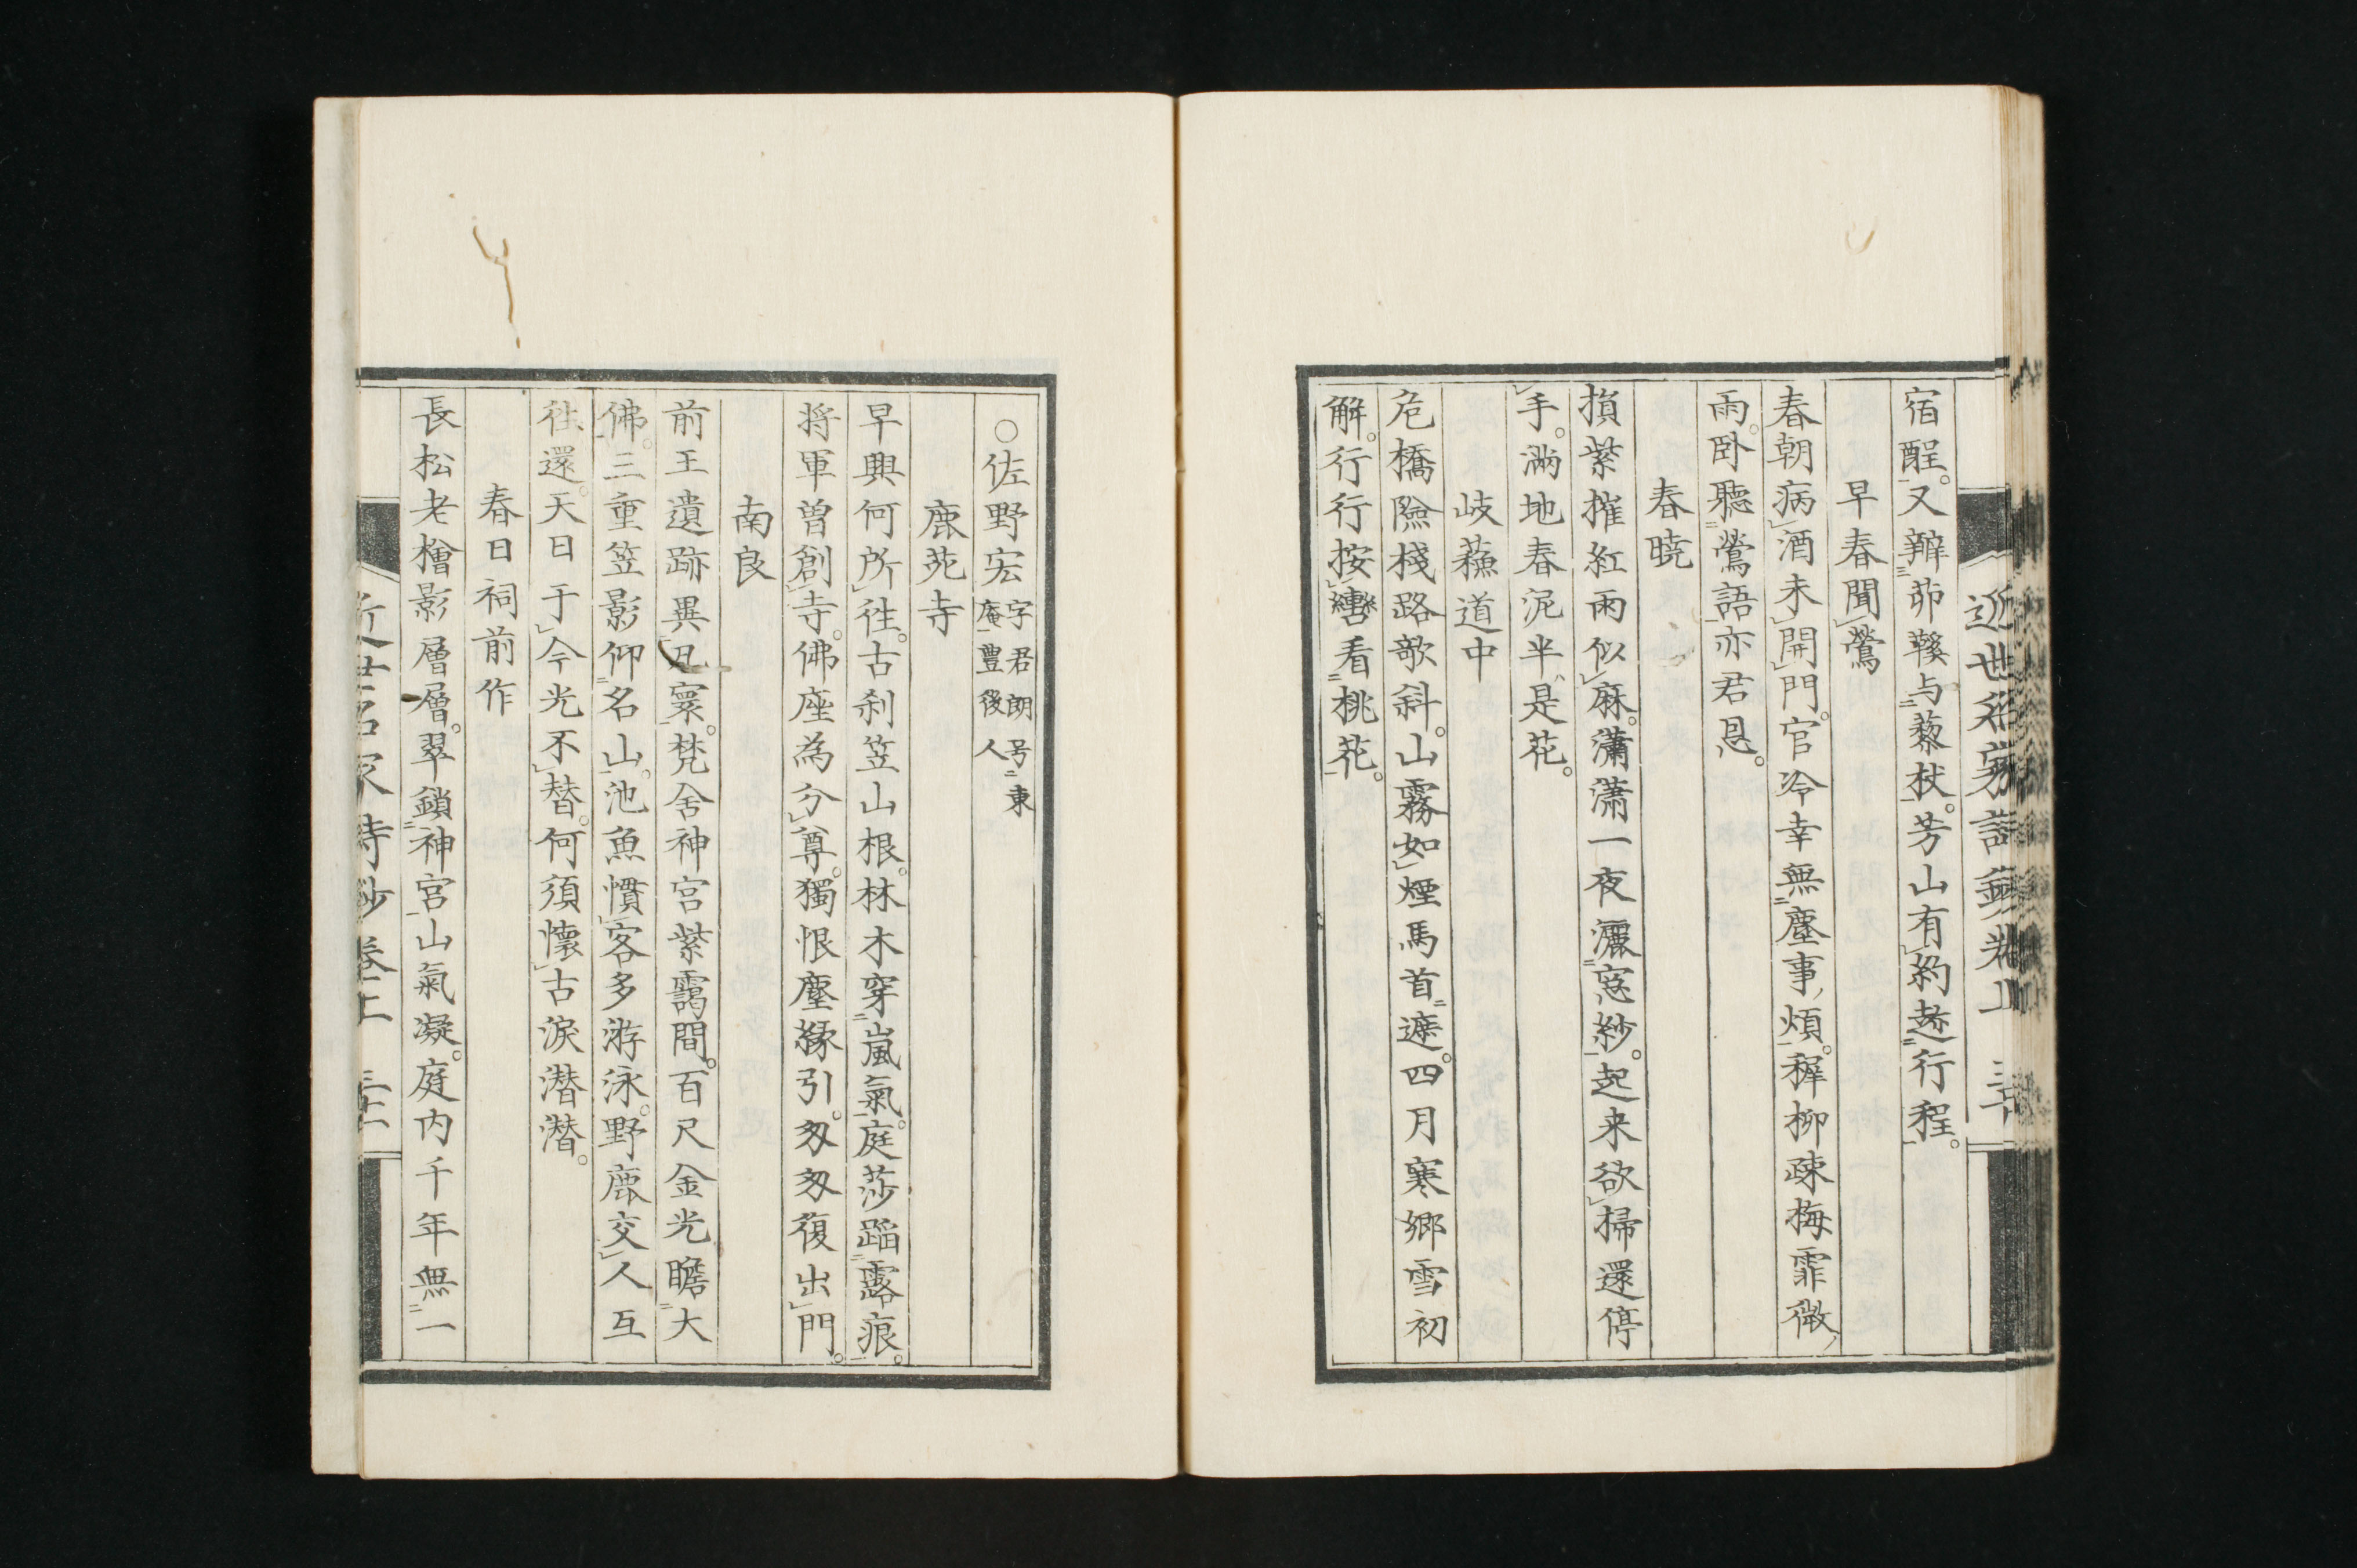 近世名家詩鈔 卷上 三十
宿酲。又辦茆鞵与藜杖。芳山有約趂行程。
早春聞鶯
春朝病酒未開門。官冷幸無塵事煩。穉柳疎梅霏微
雨。卧聽鶯語亦君恩。
春曉
損紫摧紅雨似麻。瀟瀟一夜灑窓紗。起来欲掃還停
手。滿地春泥半是花。
岐蘓道中
危橋險棧路欹斜。山霧如煙馬首遮。四月寒郷雪初
解。行行按轡看桃花。
○佐野宏 字君朗号東
庵豊後人
鹿苑寺
早興何所徃。古刹笠山根。林木穿嵐氣。庭莎蹈露痕。
将軍曽創寺。佛座為分尊。獨恨塵縁引。匆匆復出門。
南良
前王遺跡異凡寰。梵舍神宮紫靄間。百尺金光瞻大
佛。三重笠影仰名山。池魚慣客多游泳。野鹿交人互
徃還。天日于今光不替。何須懷古淚潸潸。
春日祠前作
長松老檜影層層。翠鎖神宮山氣凝。庭内千年無一
近世名家詩鈔 卷上